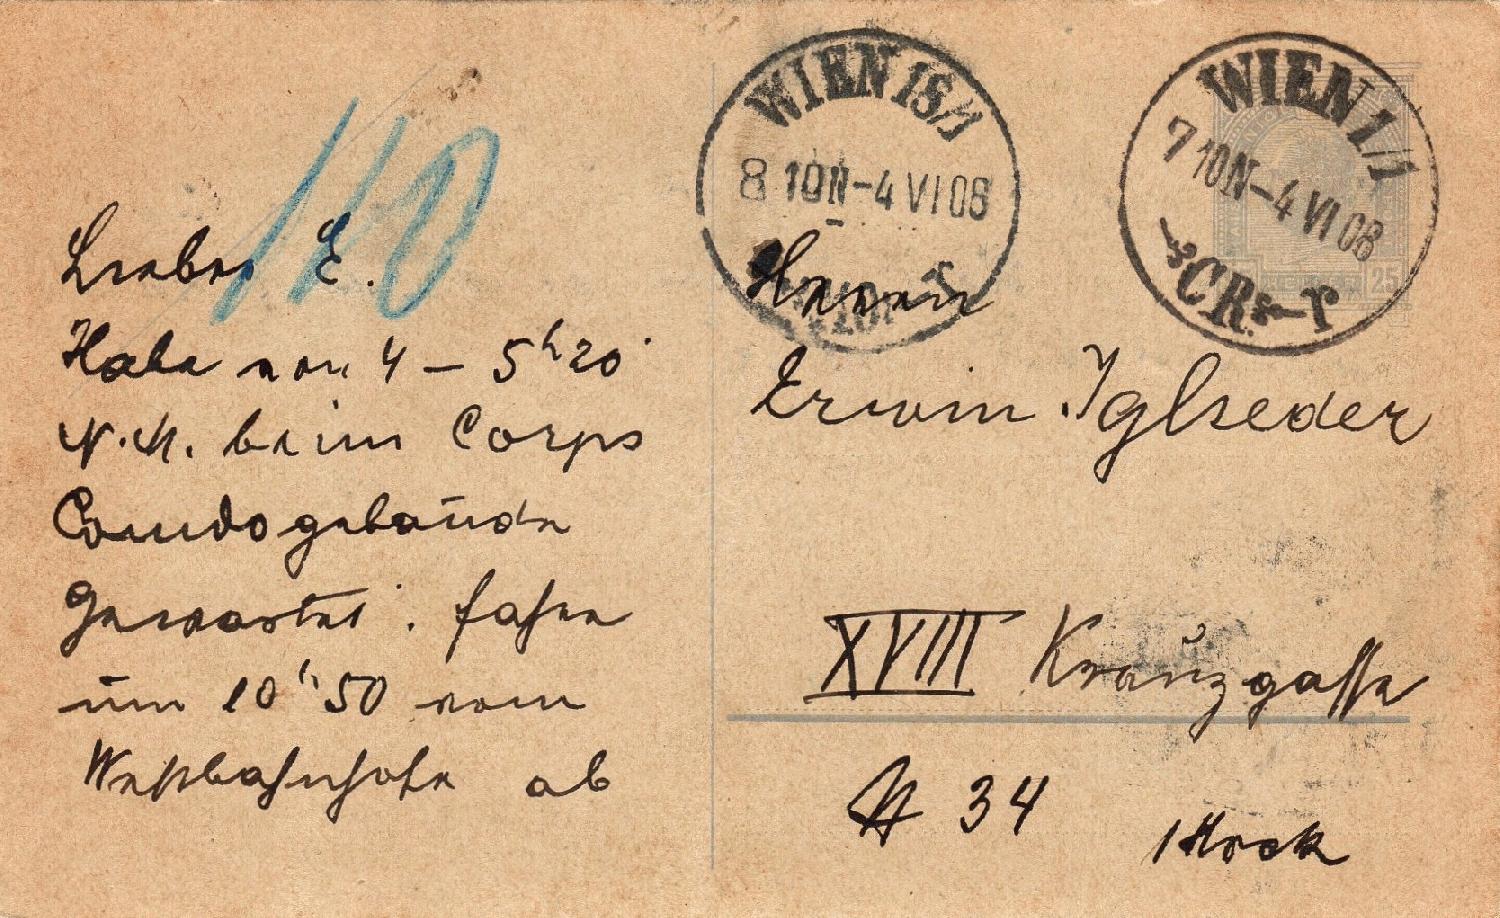 110
Lieber E.
Habe von 4 – 5h20
N.M. beim Corps
Comdogebäude
gewartet. fahre
um 10h50 vom
Westbahnhofe ab
WIEN 18/1
8 10N –4 VI 08
WIEN 1/1
7 10N –4 VI 08
25
Herrn
Erwin Iglseder
XVIII Kreuzgasse
N 34
1 Stock